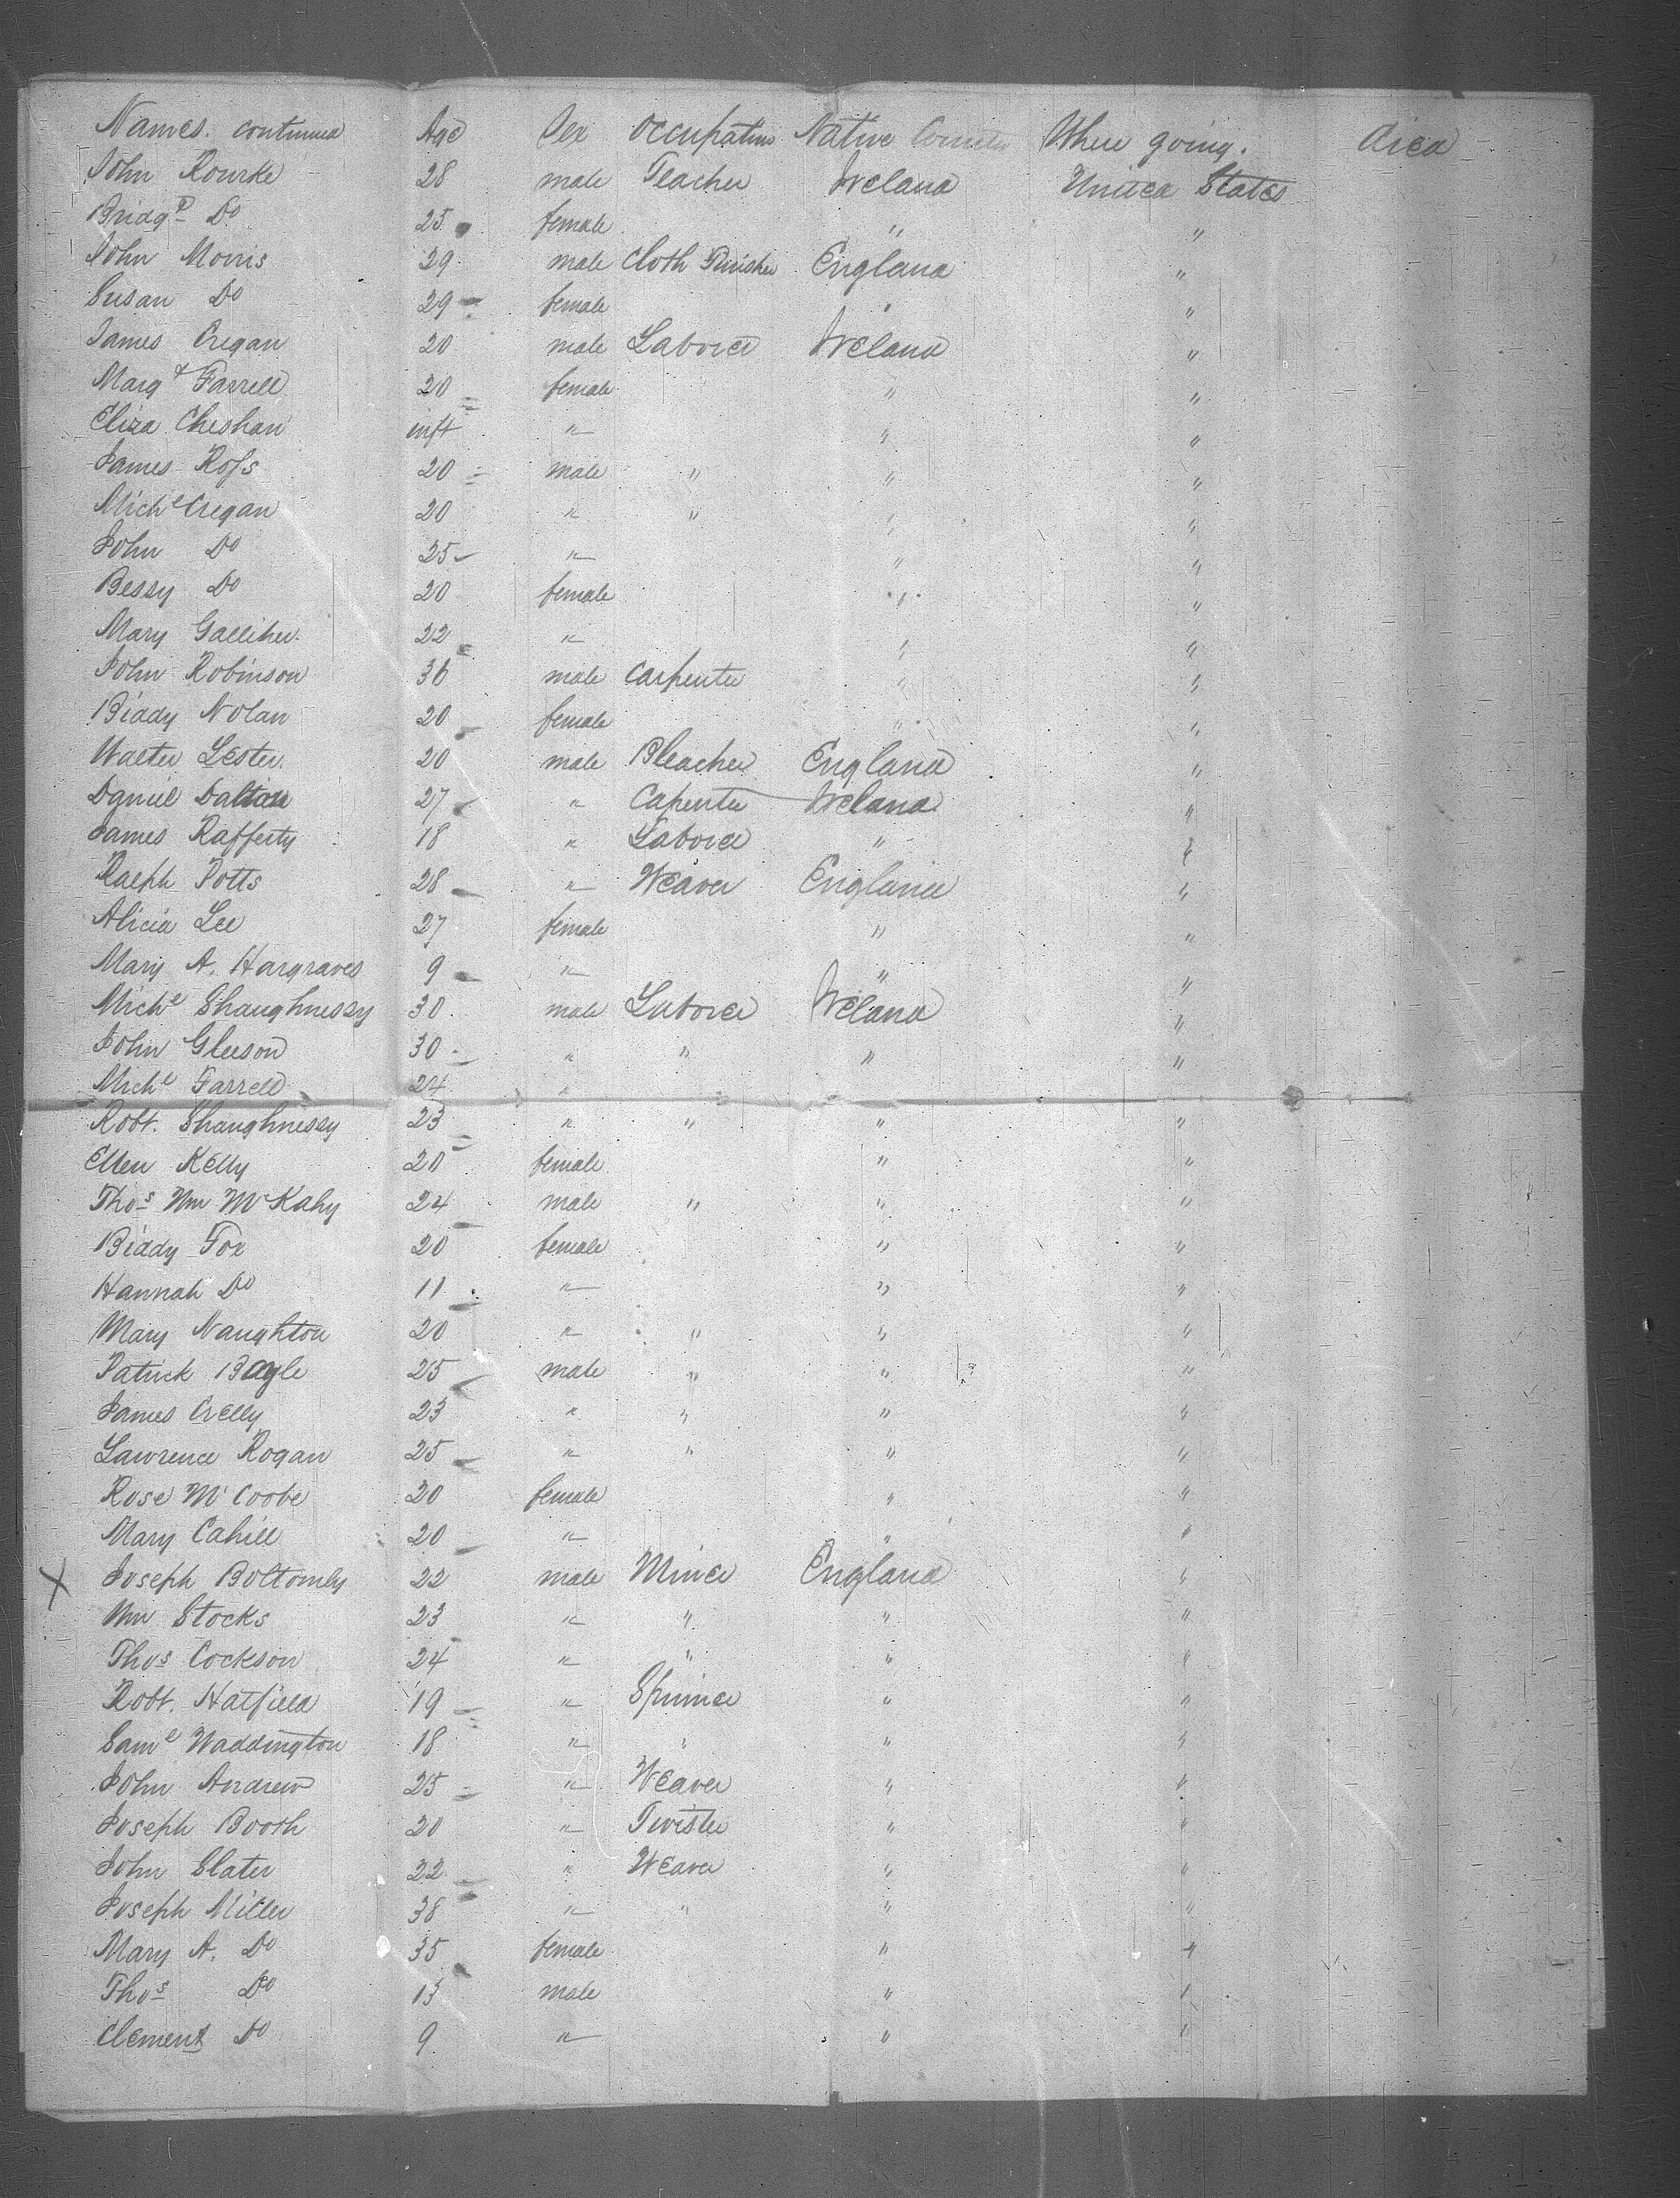 Names. continued Age Sex Occupation Native Country Where going. died
John Rourke 28 male Teacher Ireland United States
Bridgt Do 25 female " "
John Morris 29 male Cloth Finisher England "
Susan Do 29 female " "
James Cregan 20 male Laborer Ireland "
Margt Farrell 20 female " "
Eliza Cheshan inft " " "
James Rofs 20 male " " "
Michl Cregan 20 " " " "
John Do 25 " " "
Bessy Do 20 female " "
Mary Galliher 22 " " "
John Robinson 36 male Carpenter " "
Biddy Nolan 20 female " "
Walter Lester. 20 male Bleacher England "
Daniel Dalton 27 " Capenter Ireland "
James Rafferty 18 " Laborer " "
Ralph Potts 28 " Weaver England "
Alicia Lee 27 female " "
Mary A. Hargraves 9 " " "
Michl Shaughnessy 30 male Laborer Ireland "
John Gleeson 30 " " " "
Michl Farrell 24 "
Robt. Shaughnessy 23 " " " "
Ellen Kelly 20 female " "
Thos Wm McKahy 24 male " " "
Biddy Fox 20 female " "
Hannah Do 11 " " "
Mary Naughton 20 " " " "
Patrick Bayle 25 male " " "
James Crelly 23 " " " "
Lawrence Rogan 25 " " " "
Rose McCoobe 20 female " "
Mary Cahill 20 " " "
X Joseph Boltomly 22 male Miner England "
Wm Stocks 23 " " " "
Thos Cockson 24 " " " "
Robt. Hatfield 19 " Spinner " "
Saml Waddington 18 " " " "
John Andrew 25 " Weaver " "
Joseph Booth 20 " Twister " "
John Slater 22 " Weaver " "
Joseph Miller 38 " " " "
Mary A. Do 35 female " "
Thos Do 13 male " "
Clement Do 9 " " "